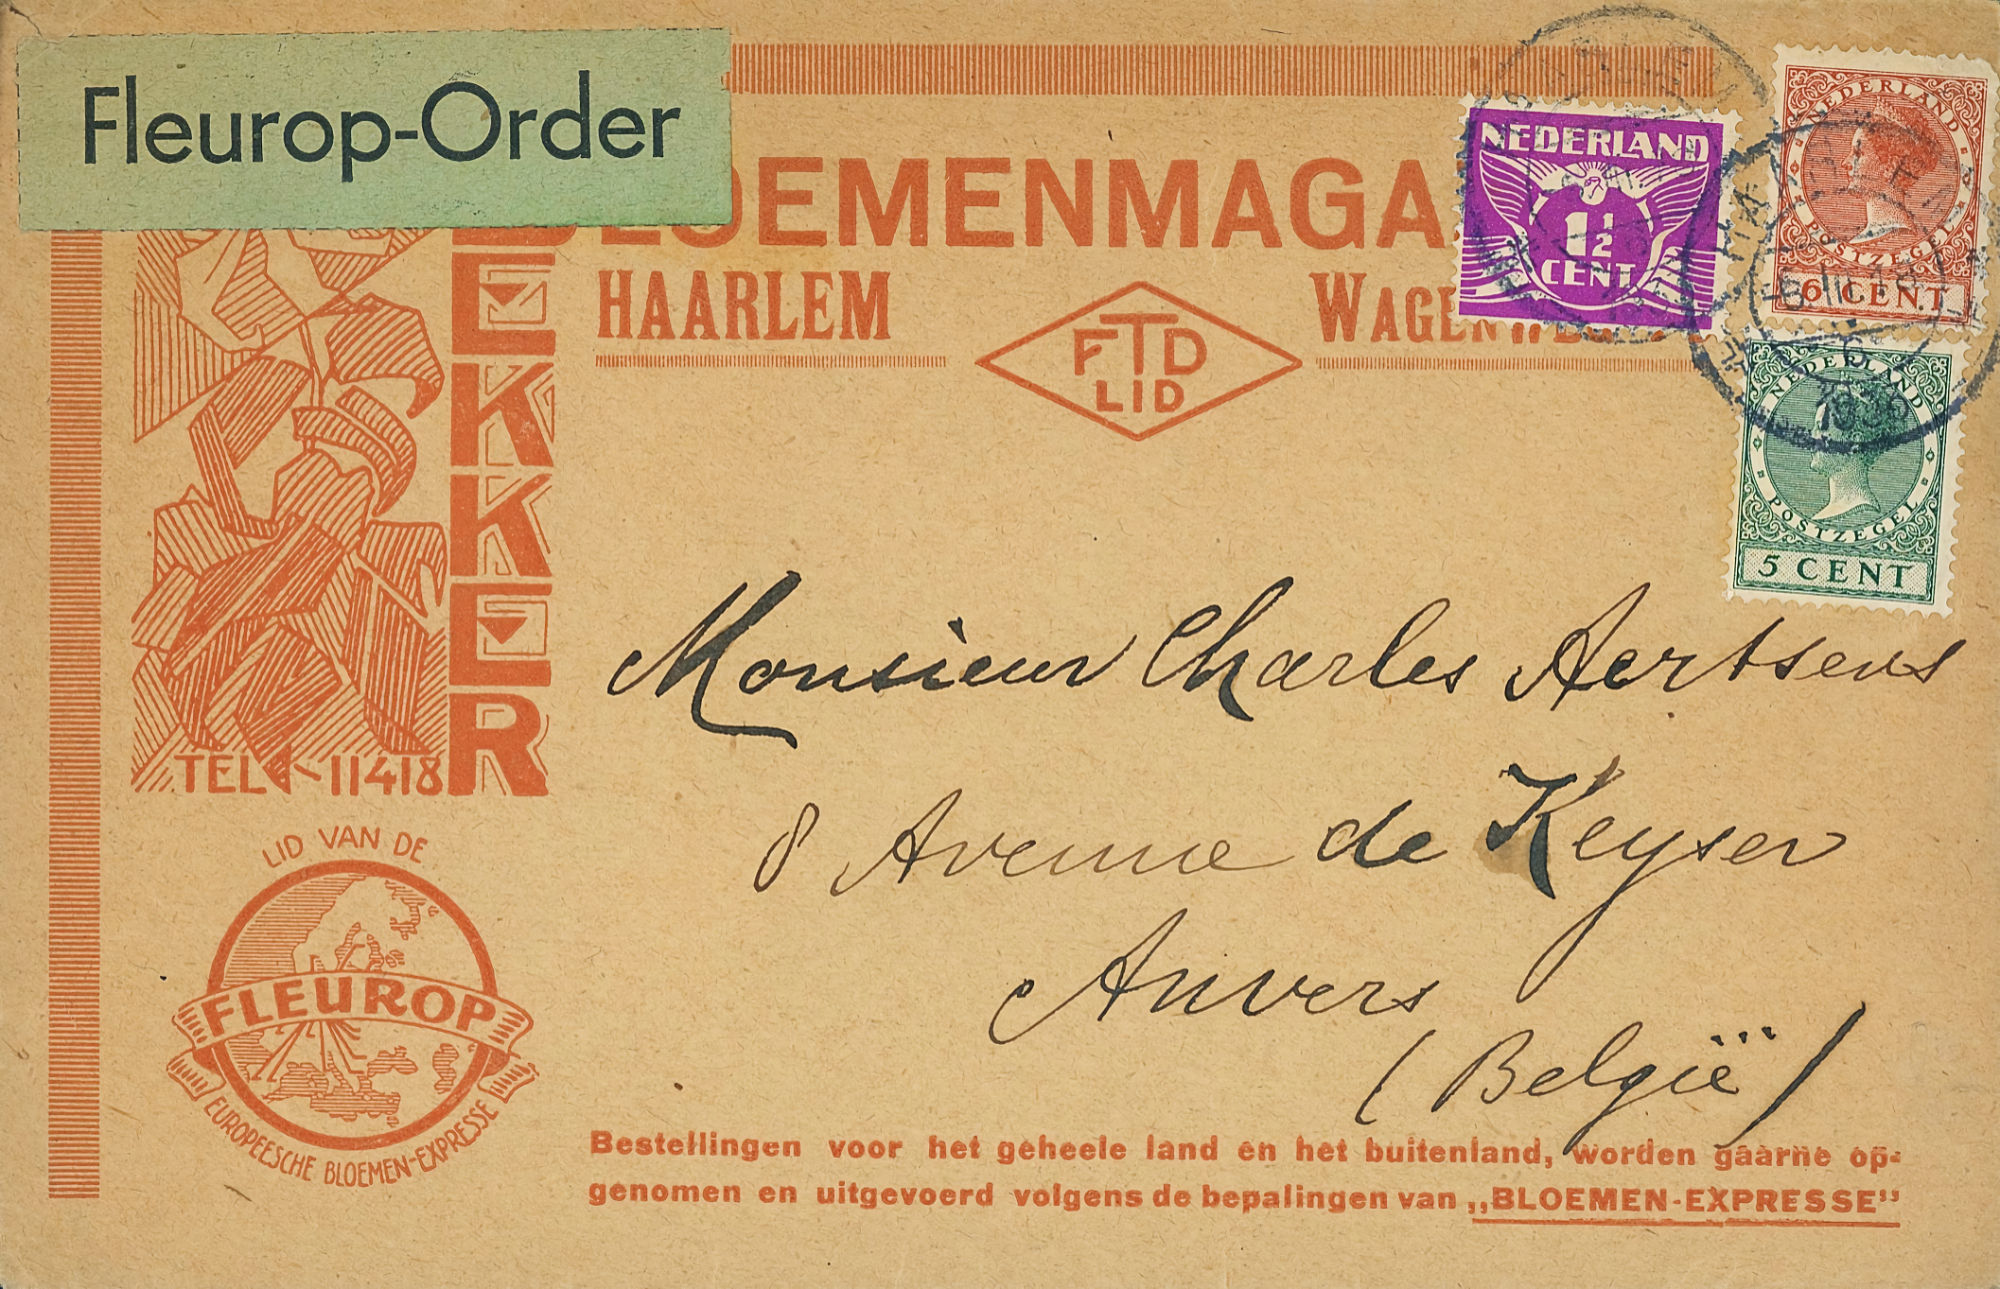 Fleurop-Order
BLOEMENMAGA
HAARLEM
FTD
LID
BEKKER
TEL 11418
LID VAN DE
FLEUROP
EUROPEESCHE BLOEMEN-EXPRESSE
NEDERLAND
1½
CENT
NEDERLAND
POSTZEGEL
6 CENT
NEDERLAND
POSTZEGEL
5 CENT
HAARLEM
1936
Monsieur Charles Aertsens
8 Avenue de Keyser
Anvers
(België)
Bestellingen voor het geheele land en het buitenland, worden gaarne op-
genomen en uitgevoerd volgens de bepalingen van „BLOEMEN-EXPRESSE"